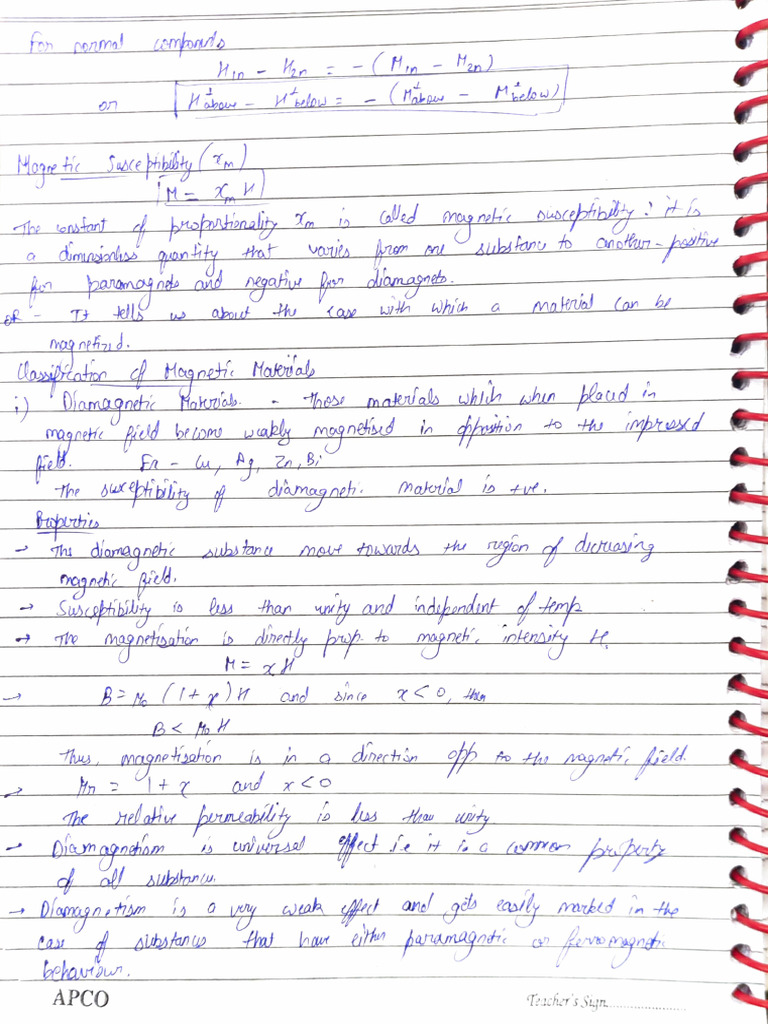 For normal components
H1n - H2n = - (M1n - M2n)
or H⊥above - H⊥below = - (M⊥above - M⊥below)
Magnetic Susceptibility (χm)
M = χm H
The constant of proportionality χm is called magnetic susceptibility: it is
a dimensionless quantity that varies from one substance to another - positive
for paramagnets and negative for diamagnets.
OR - It tells us about the ease with which a material can be
magnetized.
Classification of Magnetic Materials
i) Diamagnetic Materials. - Those materials which when placed in
magnetic field become weakly magnetised in opposition to the impressed
field. Ex - Cu, Ag, Zn, Bi
The susceptibility of diamagnetic material is +ve.
Properties
→ The diamagnetic substance move towards the region of decreasing
magnetic field.
→ Susceptibility is less than unity and independent of temp
→ The magnetisation is directly prop to magnetic intensity H.
M = χH
→ B = μ0 (1 + χ) H and since χ < 0, then
B < μ0 H
Thus, magnetisation is in a direction opp to the magnetic field.
→ μr = 1 + χ and χ < 0
The relative permeability is less than unity
- Diamagnetism is universal effect i.e it is a common property
of all substance.
→ Diamagnetism is a very weak effect and gets easily marked in the
case of substances that have either paramagnetic or ferromagnetic
behaviour.
APCO Teacher's Sign....................